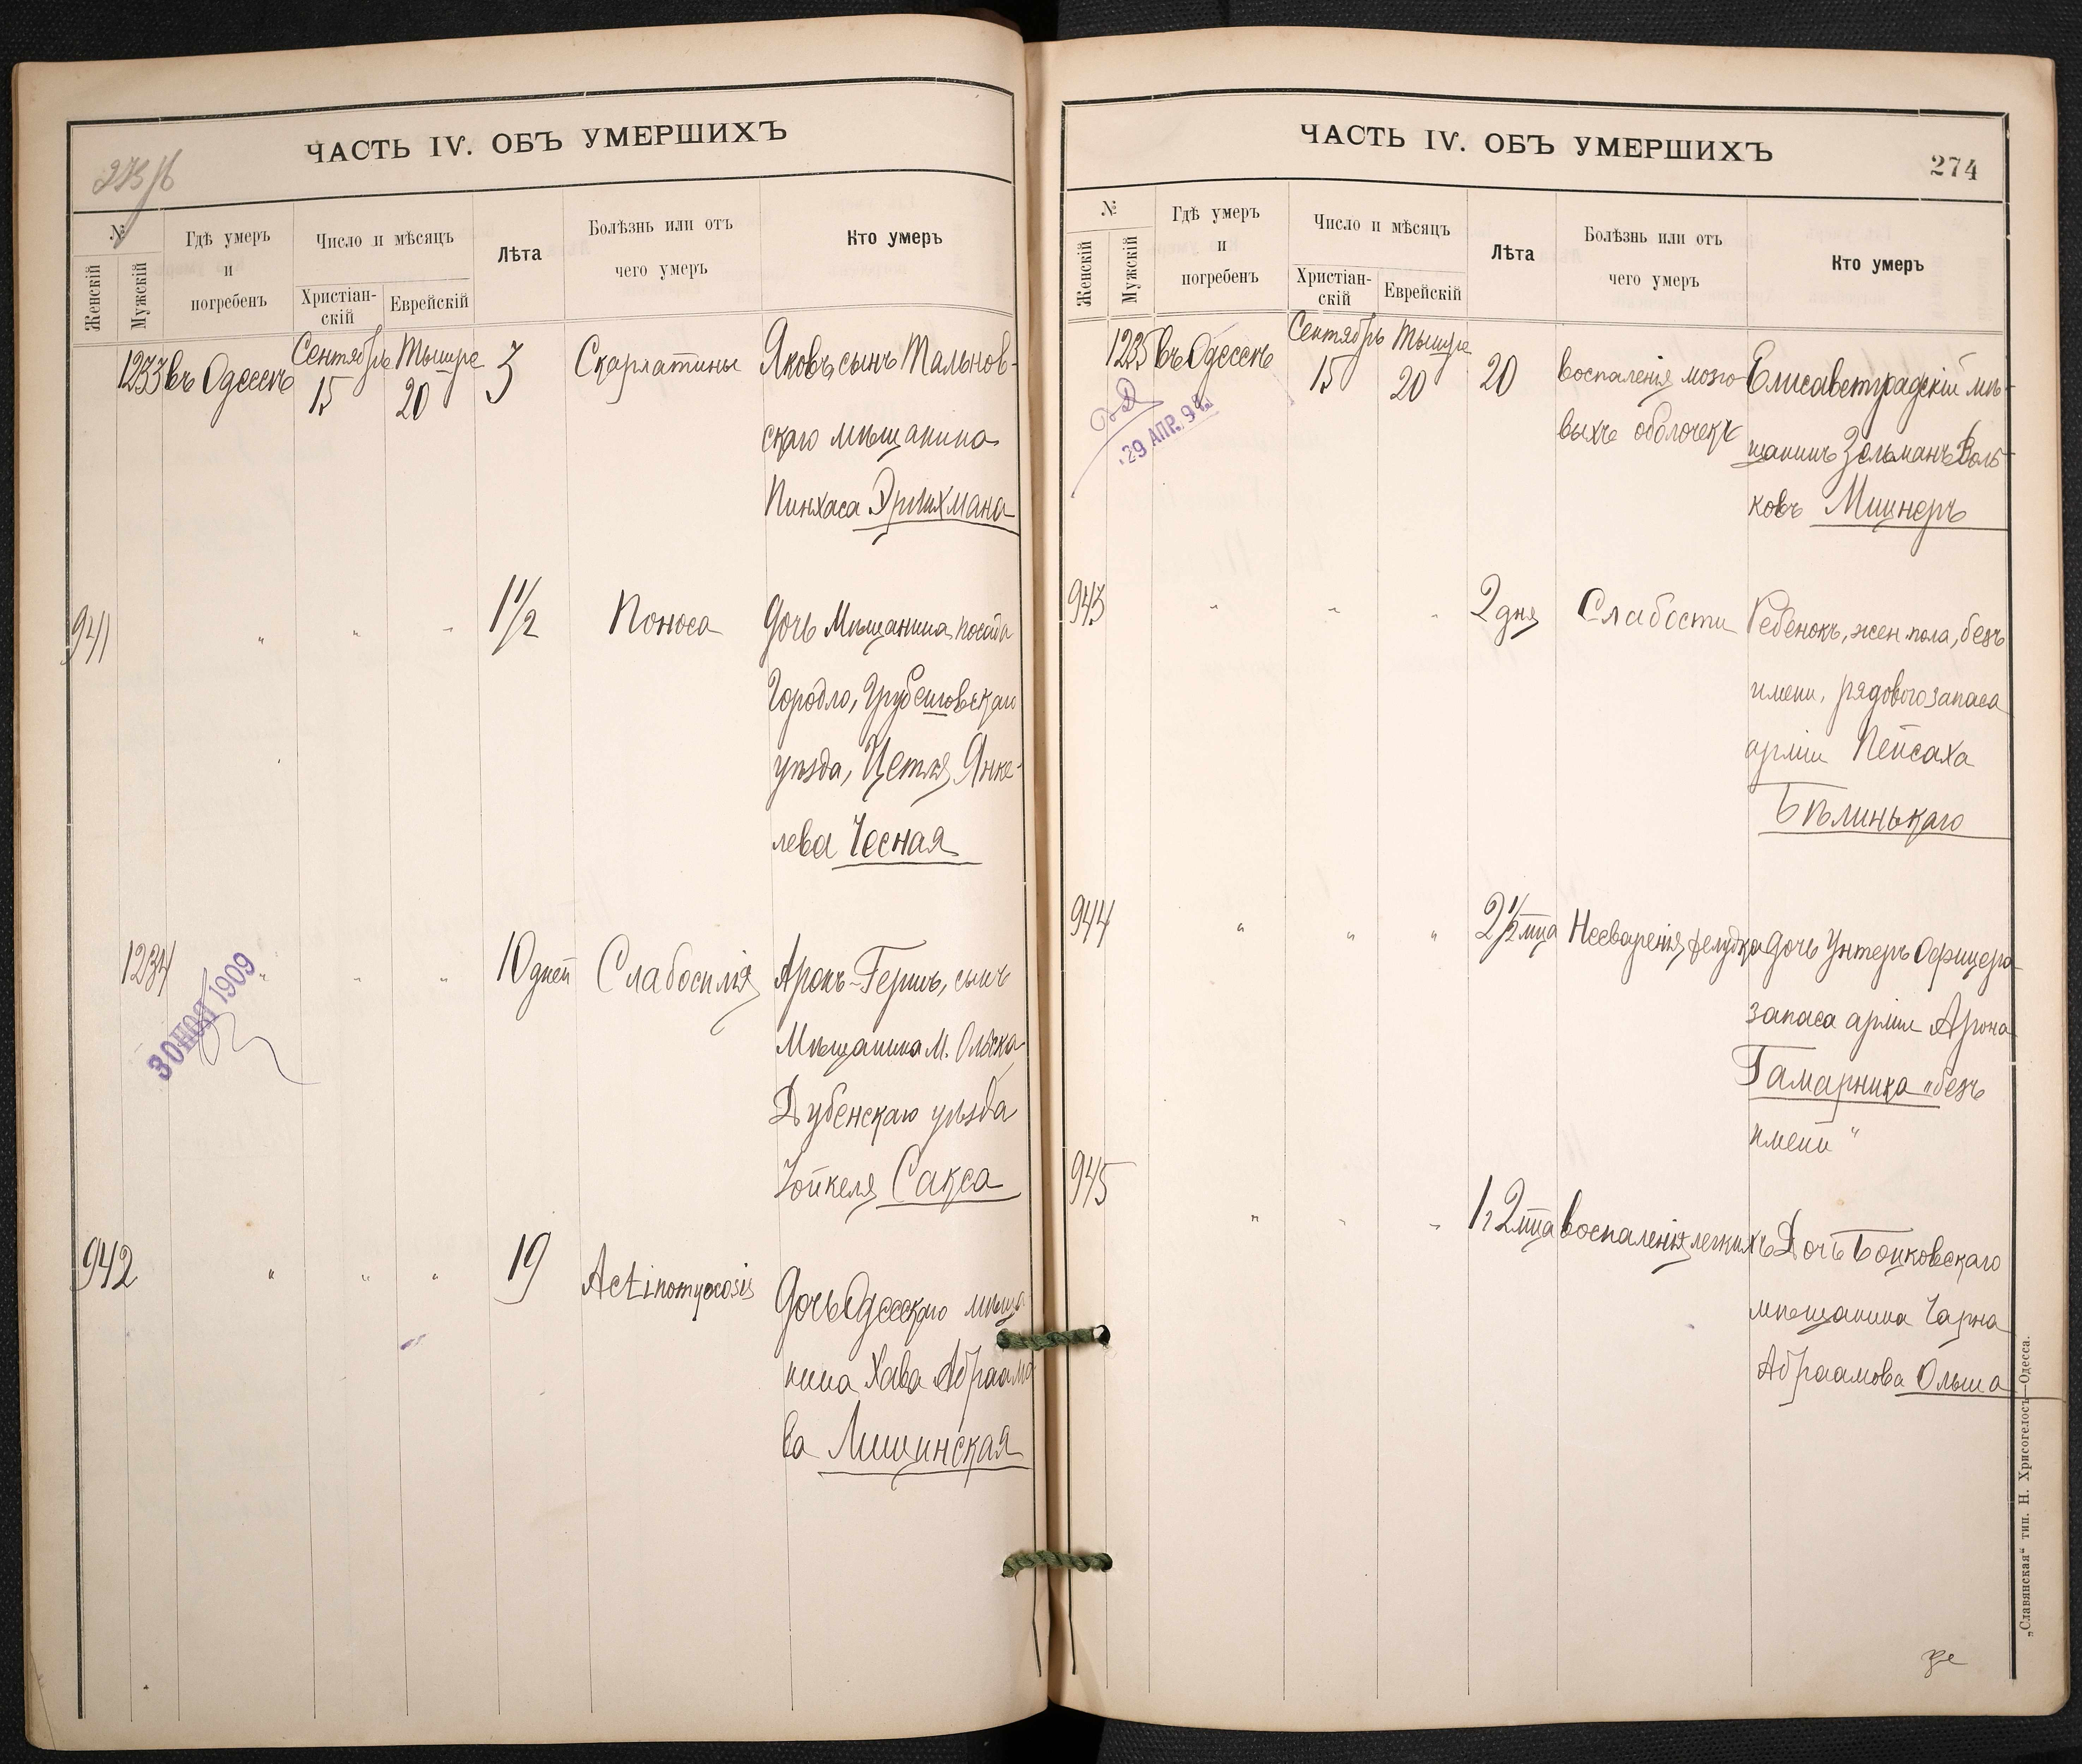 ЧАСТЬ IV. ОБЪ УМЕРШИХЪ
№
Женскій
Мужскій
Гдѣ умеръ
и
погребенъ
Число и мѣсяцъ
Христіан-
скій
Еврейскій
Лѣта
Болѣзнь или отъ
чего умеръ
Кто умеръ
1233 въ Одессѣ Сентябрь 15 Тышре 20 3 Скарлатины Яковъ, сынъ Тальнов-
скаго мѣщанина
Пинхаса Эрлихмана
941 " " " 1 1/2 Поноса Дочь Мѣщанина посада
Городло, Грубешовскаго
уѣзда, Цетля Янке-
лева Чесная
1234 " " " 10 дней Слабосилія Аронъ-Гершъ, сынъ
Мѣщанина М. Олыска
Дубенскаго уѣзда
Іойкеля Сакса
30 НОЯ 1909
942 " " " 19 Actinomycosis Дочь Одесскаго мѣща
нина Хава Абрамо
ва Лишинская
ЧАСТЬ IV. ОБЪ УМЕРШИХЪ
274
№
Женскій
Мужскій
Гдѣ умеръ
и
погребенъ
Число и мѣсяцъ
Христіан-
скій
Еврейскій
Лѣта
Болѣзнь или отъ
чего умеръ
Кто умеръ
1235 въ Одессѣ Сентябрь 15 Тышре 20 20 Воспаленія мозго- Елисаветградскій мѣ-
выхъ оболочекъ щанинъ Зельманъ Воль-
ковъ
29 АПР. 94
943 " " " 2 дня Слабости Ребенокъ, жен пола, безъ
имени, рядового запаса
арміи Пейсаха
Бѣлинькаго
944 " " " 2 1/2 мца Несваренія желудка Дочь Унтеръ Офицера
запаса арміи Арона
Гамарника "безъ
имени"
945 " " " 1, 2 мца Воспаленія легкихъ Дочь
мѣщанина Чарна
Абраамова Ольша
„Славянская“ тип. Н. Хрисогелосъ—Одесса.